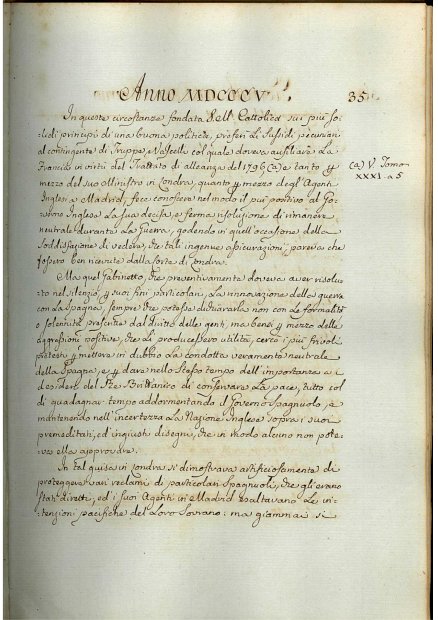 Anno MDCCCV.
35
In queste circostanze fondata S. M. Cattolica sui più so-
lidi principj di una buona politica, preferì i Sussidj pecuniarj
al contingente di Truppe, e Vascelli col quale doveva ausiliare la
Francia in virtù del Trattato di alleanza del 1796 (a) e tanto p
mezzo del suo Ministro in Londra, quanto p mezzo degl'Agenti
Inglesi a Madrid, fece conoscere nel modo il più positivo al Go-
verno Inglese la sua decisa, e ferma risoluzione di rimanere
neutrale durante la Guerra, godendo in quell'occasione della
Soddisfazione di vedere, che tali ingenue assicurazioni, pareva che
fossero ben ricevute dalla Corte di Londra.
(a) V. Tomo
XXXI. a 5
Ma quel Gabinetto, che preventivamente doveva aver risolu-
to nel silenzio, p suoi fini particolari, la rinnovazione della guerra
con la Spagna, sempre che potesse dichiararla non con le formalità
o solennità prescritte dal diritto delle genti, ma bensì p mezzo delle
aggressioni positive, che le producessero utilità, cercò i più frivoli
pretesti p mettere in dubbio la condotta veramente neutrale
della Spagna, e p dare nello stesso tempo dell'importanza a i
desiderj del Re Brittannico di conservare la pace, tutto col
di guadagnar tempo addormentando il Governo Spagnuolo, e
mantenendo nell'incertezza la Nazione Inglese sopra i suoi
premeditati, ed ingiusti disegni, che in modo alcuno non pote-
va ella approvare.
In tal guisa in Londra si dimostrava artificiosamente di
proteggere varj reclami di particolari Spagnuoli, che gli erano
stati diretti, ed i suoi Agenti in Madrid esaltavano le in-
tenzioni pacifiche del loro Sovrano: ma giammai si